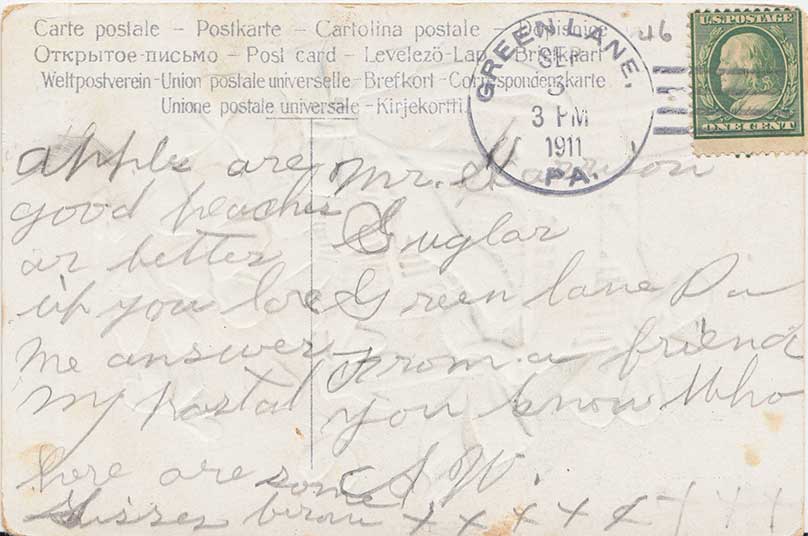 Carte postale – Postkarte – Cartolina postale – Dopisnice
Открытое письмо – Post card – Levelező-Lap – Briefkaart
Weltpostverein - Union postale universelle - Brefkort - Correspondenzkarte
Unione postale universale – Kirjekortti
46
U.S. POSTAGE
ONE CENT
GREEN LANE,
SEP
3 PM
1911
PA.
apples are
good peaches
ar better
if you love
me answer
my postal
here are some
kisses x x x x x x x x
Mr. Harrison
Green lane Pa
From a friend
you know Who
A W.